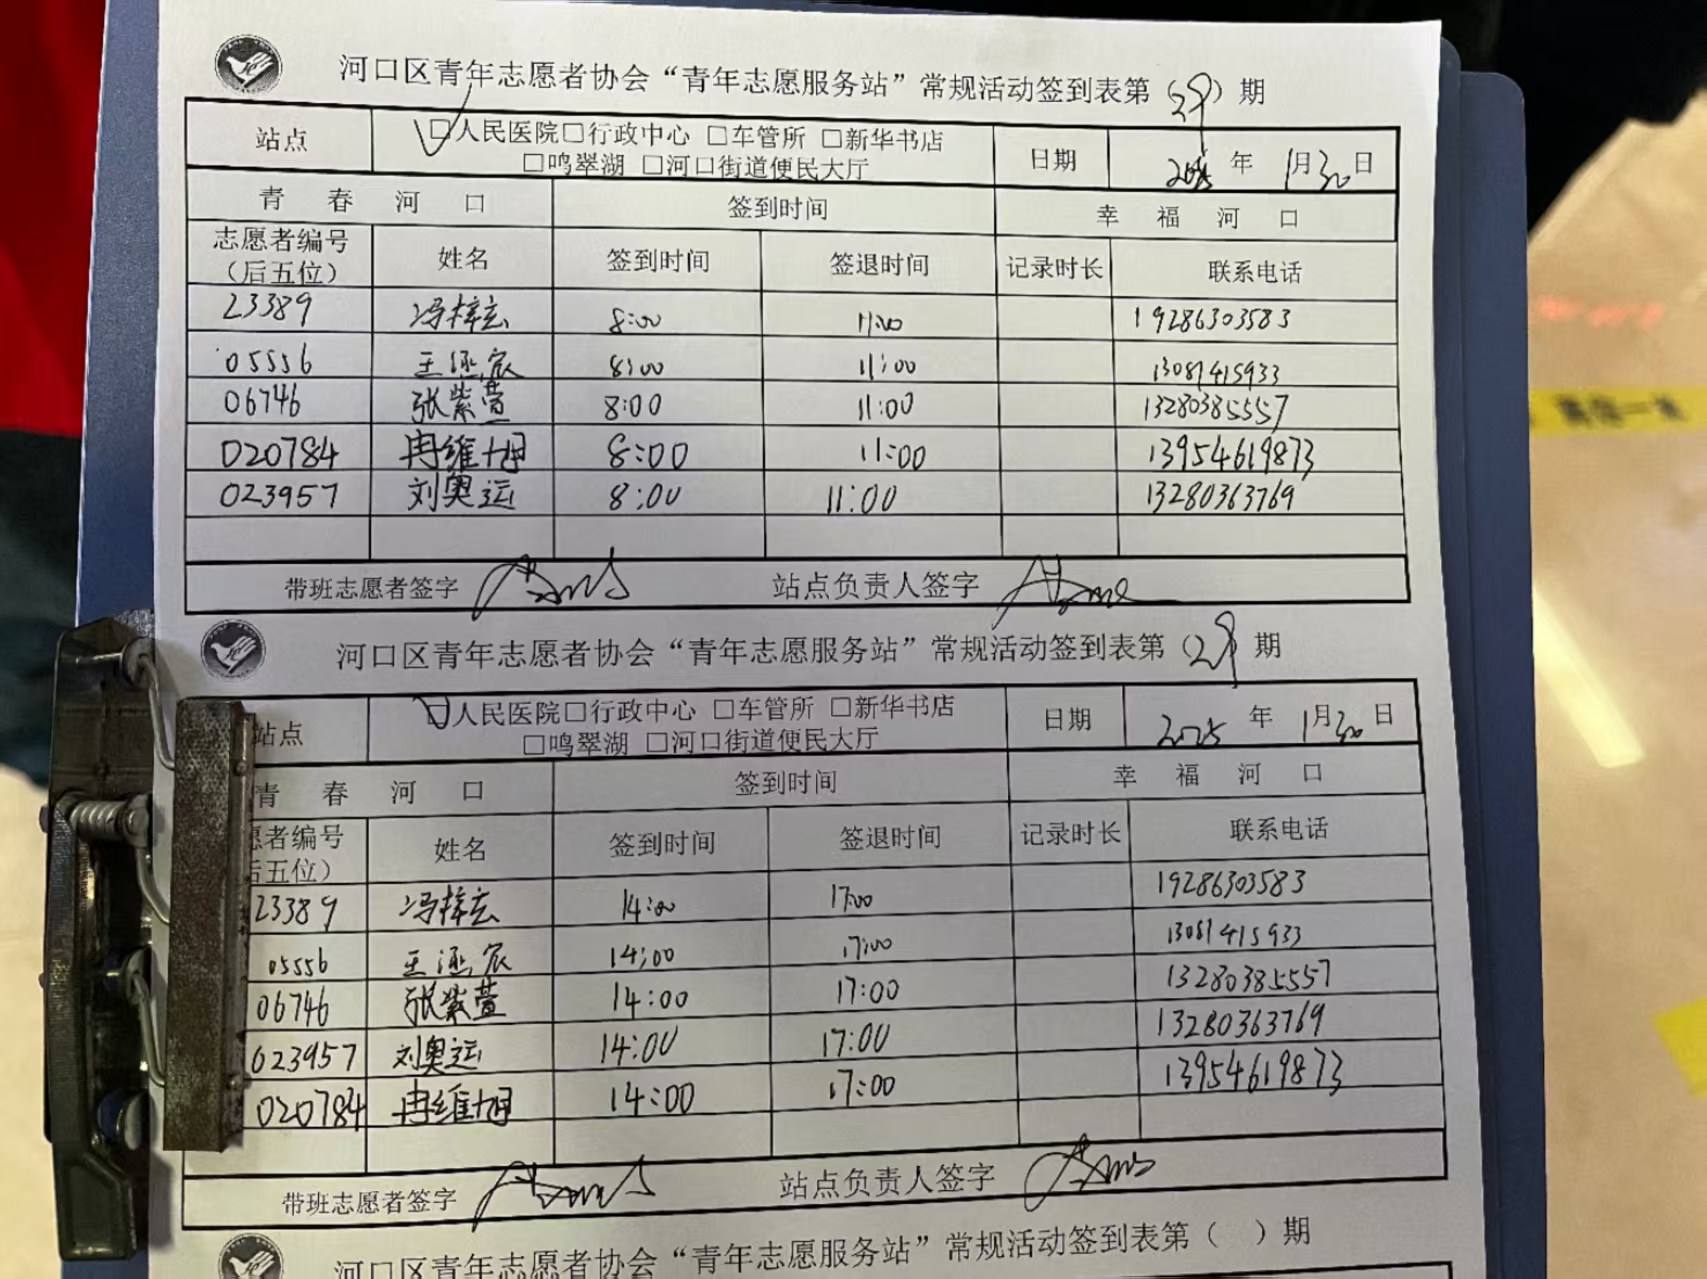 河口区青年志愿者协会“青年志愿服务站”常规活动签到表第（29）期
站点 ☑人民医院□行政中心 □车管所 □新华书店 日期 2025年 1月30日
□鸣翠湖 □河口街道便民大厅
青 春 河 口 签到时间 幸 福 河 口
志愿者编号（后五位） 姓名 签到时间 签退时间 记录时长 联系电话
23389 冯梓玄 8:00 11:00 19286303583
05556 王 宸 8:00 11:00 13081415933
06746 张紫萱 8:00 11:00 13280385557
020784 冉维旭 8:00 11:00 13954619873
023957 刘奥运 8:00 11:00 13280363769
带班志愿者签字 站点负责人签字
河口区青年志愿者协会“青年志愿服务站”常规活动签到表第（29 期
站点 ☑人民医院□行政中心 □车管所 □新华书店 日期 2025 年 1月30日
□鸣翠湖 □河口街道便民大厅
青 春 河 口 签到时间 幸 福 河 口
愿者编号 后五位） 姓名 签到时间 签退时间 记录时长 联系电话
23389 冯梓玄 14:00 17:00 19286303583
05556 王 宸 14:00 17:00 13081415933
06746 张紫萱 14:00 17:00 13280385557
023957 刘奥运 14:00 17:00 13280363769
020784 冉维旭 14:00 17:00 13954619873
带班志愿者签字 站点负责人签字
河口区青年志愿者协会“青年志愿服务站”常规活动签到表第（ ）期